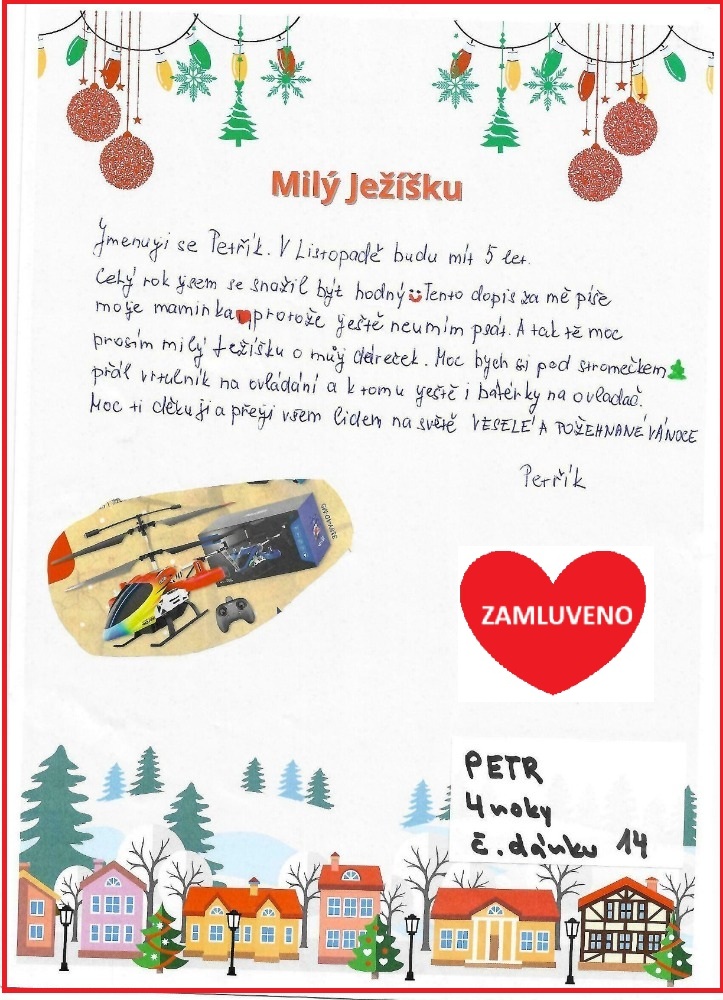 Milý Ježíšku
Jmenuji se Petřík. V Listopadě budu mít 5 let.
Celý rok jsem se snažil být hodný Tento dopis za mě píše
moje maminka protože ještě neumím psát. A tak tě moc
prosím milý Ježíšku o můj dáreček. Moc bych si pod stromečkem
přál vrtulník na ovládání a k tomu ještě i batérky na ovladač.
Moc ti děkuji a přeji všem lidem na světě VESELÉ A POŽEHNANÉ VÁNOCE
Petřík
ZAMLUVENO
PETR
4 roky
č. dárku 14